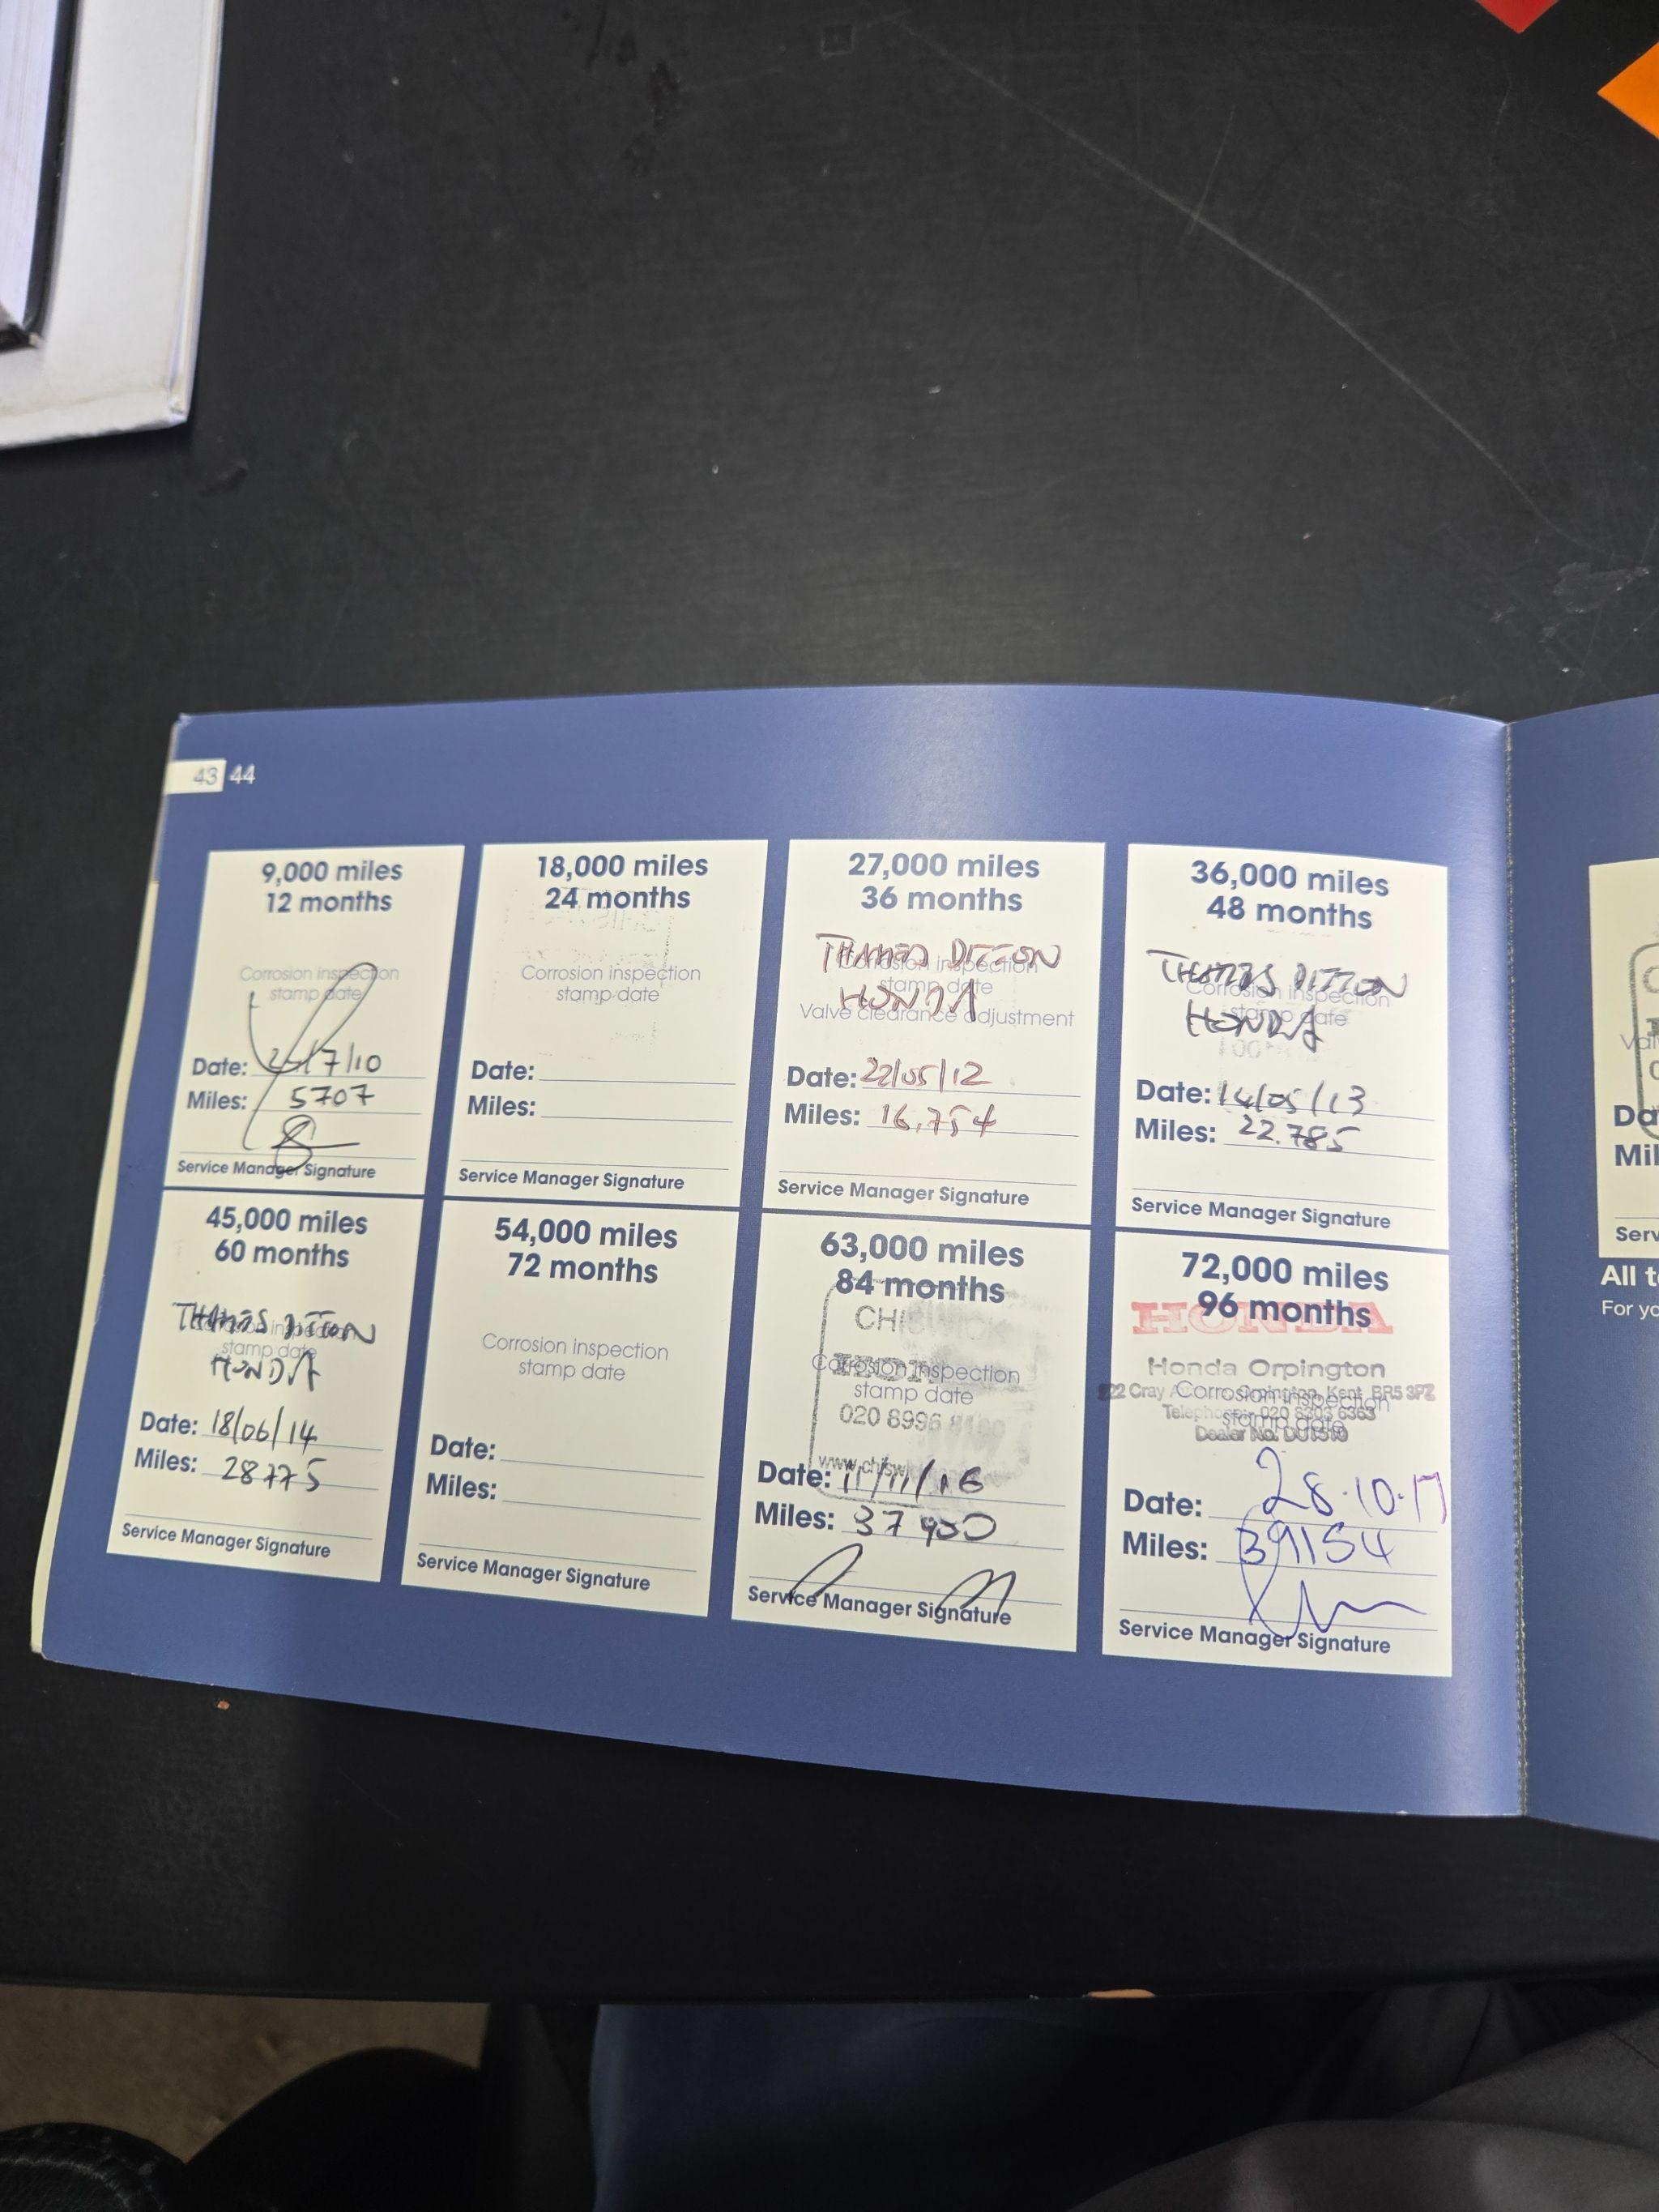 43 44
9,000 miles
12 months
Corrosion inspection
stamp date
Date: /7/10
Miles: 5707
Service Manager Signature
18,000 miles
24 months
Corrosion inspection
stamp date
Date:
Miles:
Service Manager Signature
27,000 miles
36 months
THAMES DITTON
Corrosion inspection
stamp date
HONDA
Valve clearance adjustment
Date: 22/05/12
Miles: 16,754
Service Manager Signature
36,000 miles
48 months
THAMES DITTON
Corrosion inspection
stamp date
HONDA
Date: 14/05/13
Miles: 22.785
Service Manager Signature
45,000 miles
60 months
THAMES DITTON
Corrosion inspection
stamp date
HONDA
Date: 18/06/14
Miles: 28775
Service Manager Signature
54,000 miles
72 months
Corrosion inspection
stamp date
Date:
Miles:
Service Manager Signature
63,000 miles
84 months
CHISWICK
Corrosion inspection
stamp date
020 8996
Date: 11/11/16
Miles: 37900
Service Manager Signature
72,000 miles
96 months
HONDA
Honda Orpington
Corrosion inspection
22 Cray Orpington, Kent BR5 3PZ
stamp date
020 8303 6363
Dealer No.
Date: 28.10.17
Miles: 39154
Service Manager Signature
All
For